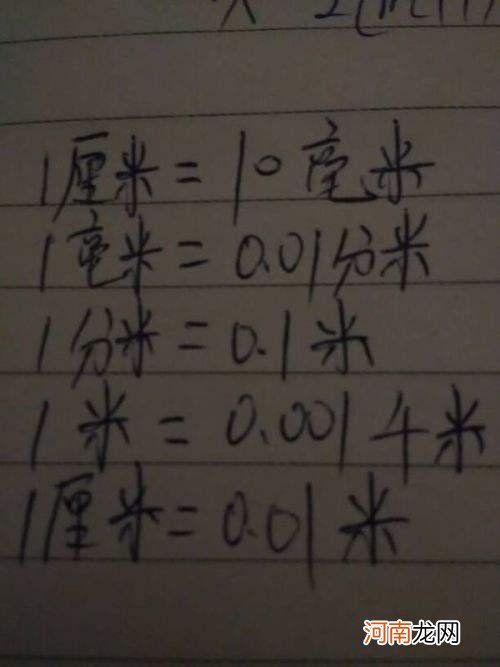 1厘米=10毫米
1毫米=0.01分米
1分米=0.1米
1米=0.001千米
1厘米=0.01米
河南龙网